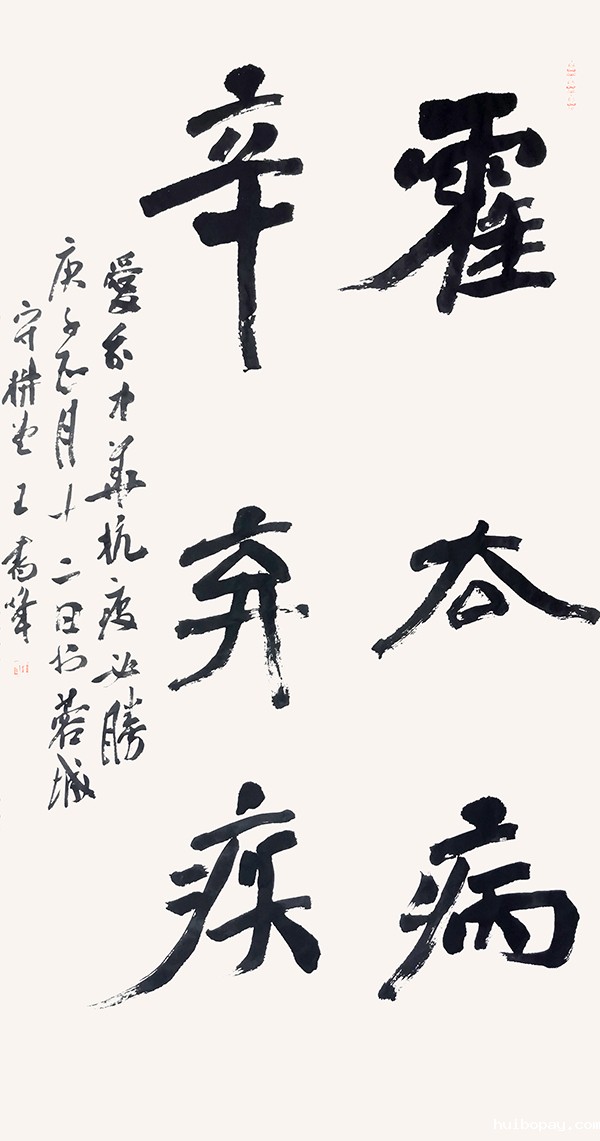 霍去病
辛弃疾
愛我中華抗疫必勝
庚子正月十二日於蓉城
守耕堂王書峯
huibopay.com